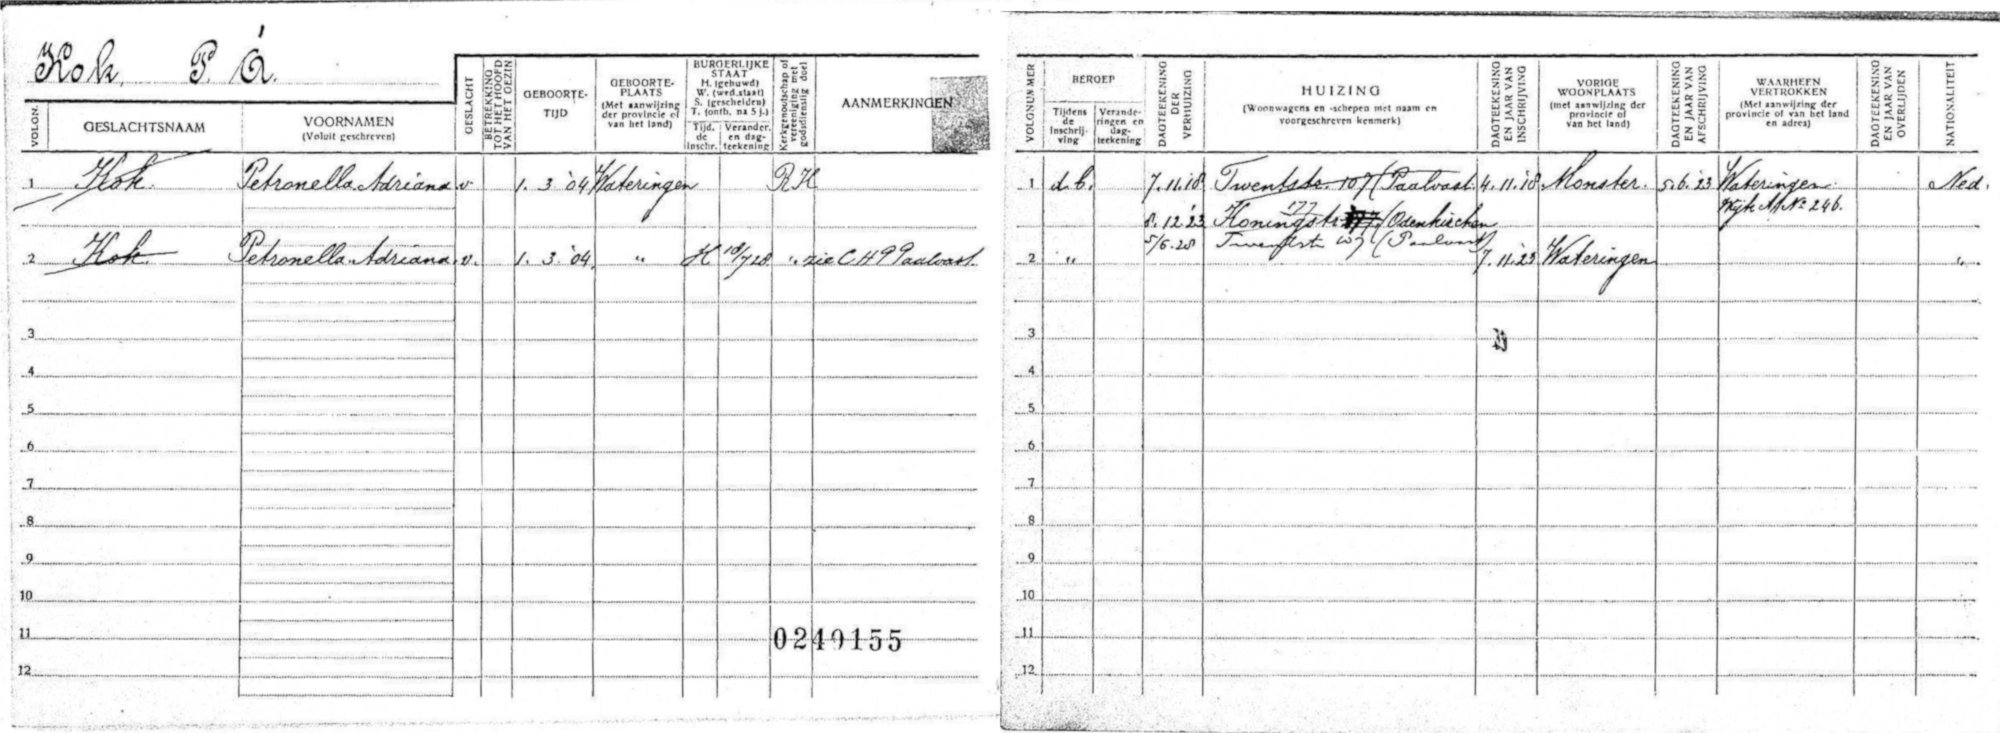 Kok, P. A.
VOLGN.
GESLACHTSNAAM
VOORNAMEN
(Voluit geschreven)
GESLACHT
BETREKKING TOT HET HOOFD VAN HET GEZIN
GEBOORTE-TIJD
GEBOORTE-PLAATS
(Met aanwijzing der provincie of van het land)
BURGERLIJKE STAAT
H. (gehuwd)
W. (wed.staat)
S. (gescheiden)
T. (ontb. na 5 j.)
Tijd. de Inschr.
Verander. en dag-teekening
Kerkgenootschap of vereeniging met godsdienstig doel
AANMERKINGEN
1 Kok. Petronella Adriana v. 1. 3 '04 Wateringen R K
2 Kok. Petronella Adriana v. 1. 3 '04. " H 18/7 28 " zie C H P Paalvast.
3
4
5
6
7
8
9
10
11
12
0249155
VOLGNUMMER
BEROEP
Tijdens de Inschrij-ving
Verande-ringen en dag-teekening
DAGTEEKENING DER VERHUIZING
HUIZING
(Woonwagens en -schepen met naam en voorgeschreven kenmerk)
DAGTEEKENING EN JAAR VAN INSCHRIJVING
VORIGE WOONPLAATS
(met aanwijzing der provincie of van het land)
DAGTEEKENING EN JAAR VAN AFSCHRIJVING
WAARHEEN VERTROKKEN
(Met aanwijzing der provincie of van het land en adres)
DAGTEEKENING EN JAAR VAN OVERLIJDEN
NATIONALITEIT
1 d.b. 7.11.18 Twentstr. 107 (Paalvast. 4.11.'18 Monster. 5.6.'23 Wateringen Ned.
Wijk A No 246.
8.12.'23 Koningstr 177 (Odenkirchen
5/6.28 Twentstr 107 (Paalvast)
2 " 7.11.'23 Wateringen "
3
4
5
6
7
8
9
10
11
12